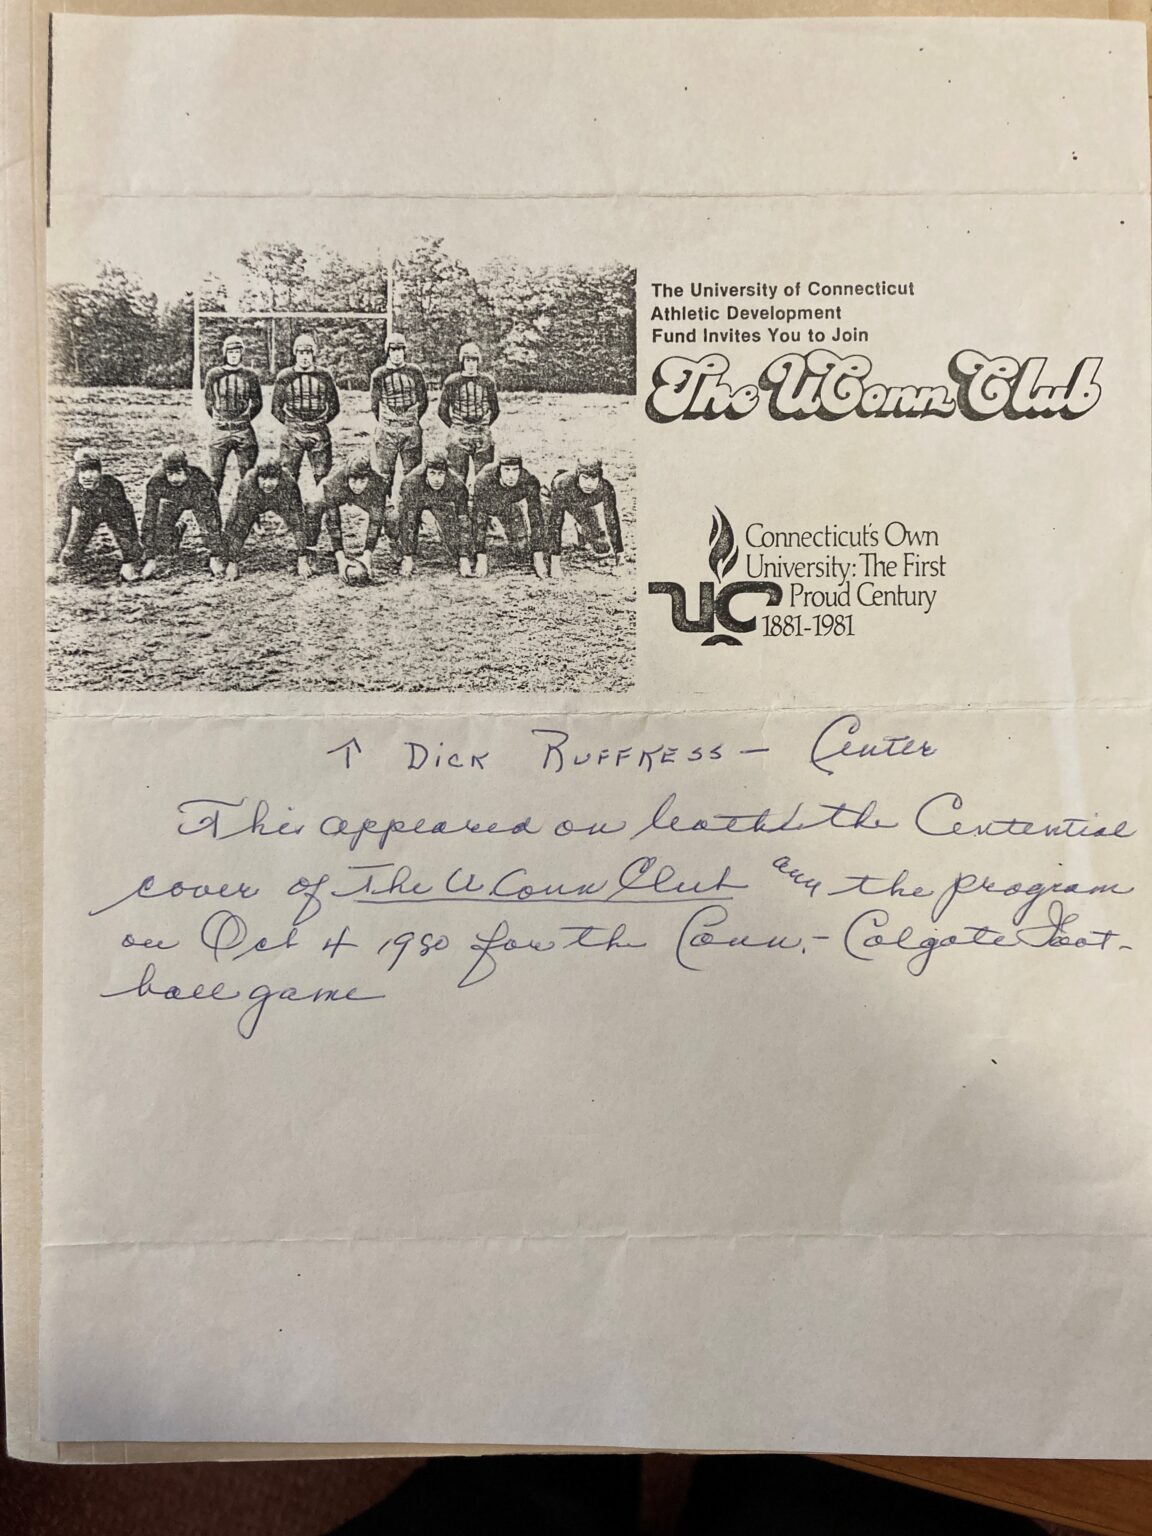 The University of Connecticut
Athletic Development
Fund Invites You to Join
The UConn Club
Connecticut's Own
University: The First
Proud Century
1881-1981
UC
↑ Dick Ruffkess - Center
This appeared on both the Centential
cover of The U Conn Club and the program
on Oct 4 1980 for the Conn.- Colgate Foot-
ball game